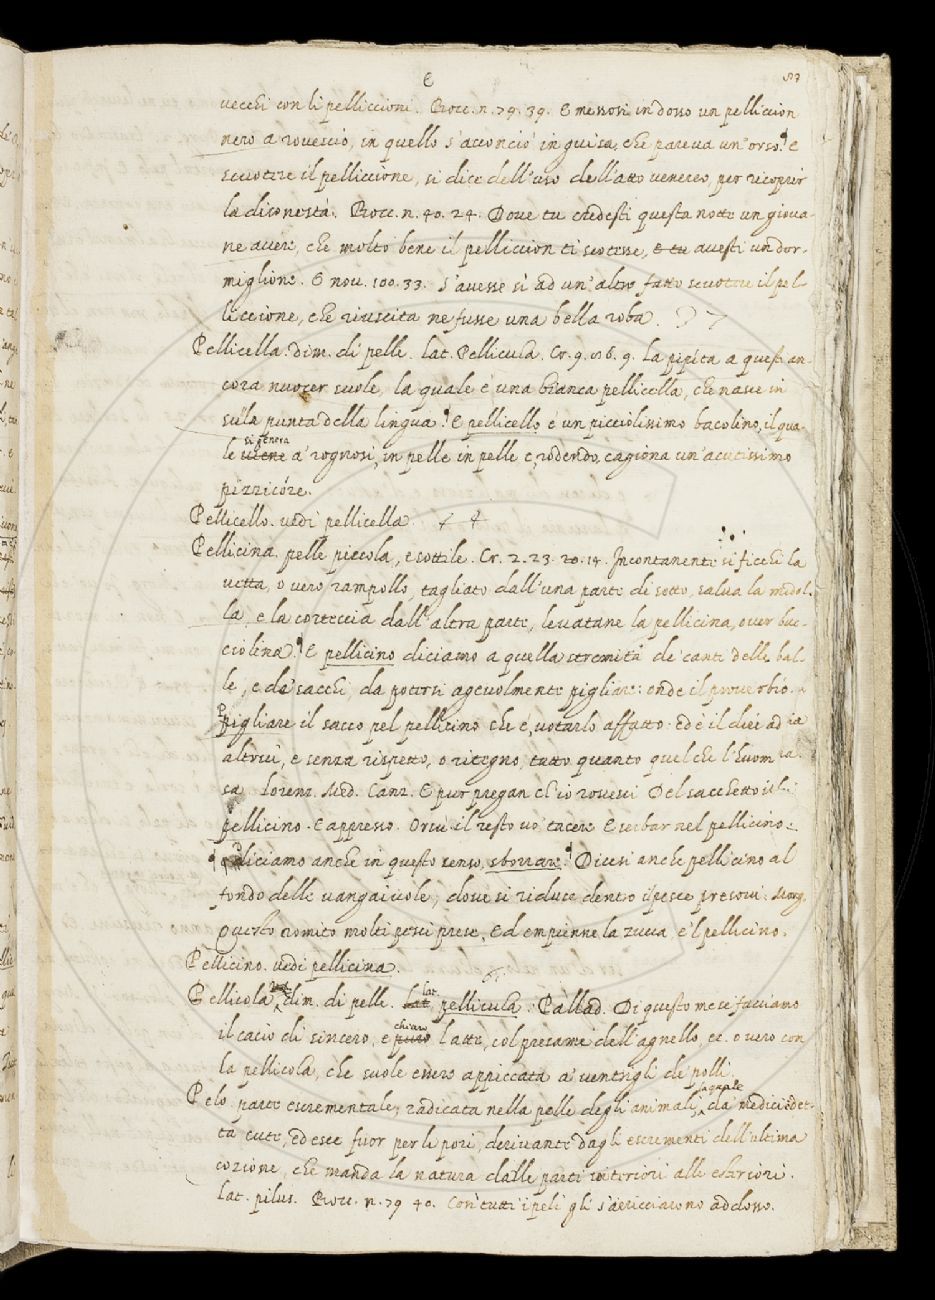 E 87
vecchi con li pelliccioni. Bocc. n. 79. 39. E messosi in dosso un pelliccion
nero a rovescio, in quello s'acconciò in guisa, che pareva un'orso. E
scuotere il pelliccione, si dice dell'uso dell'atto venereo, per ricoprir
la disonestà. Bocc. n. 40. 24. Dove tu credesti questa notte un giova-
ne avere, che molto bene il pelliccion ti scotesse, E tu avesti un dor-
miglione. E nov. 100. 33. S'avesse sì ad un'altro fatto scuotere il pel-
liccione, che riuscita ne fusse una bella roba.
Pellicella. dim. di pelle. lat. Pellicula. Cr. 9. 86. 9. La pipita a questi an-
cora nuocer suole, la quale è una bianca pellicella, che nasce in
sulla punta della lingua. E pellicello è un picciolissimo bacolino, il qua-
si genera
le viene a' rognosi, in pelle in pelle e, rodendo, cagiona un'acutissimo
pizzicóre.
Pellicello. vedi pellicella.
Pellicina. pelle piccola, e sottile. Cr. 2. 23. 20. 14. Incontanente si ficchi la
vetta, o vero rampollo, tagliato dall'una parte di sotto, salva la midol-
la, e la corteccia dall'altra parte, levatane la pellicina, over buc-
ciolina. E pellicino diciamo a quella stremità de' canti delle bal-
le, e de' sacchi, da potersi agevolmente pigliare: onde il proverbio.
Pigliare il sacco pel pellicino che è, votarlo affatto: ed è il dir ad
altrui, e senza rispetto, o ritegno, tutto quanto quel che l'huom
sa. Lorenz. Med. Canz. E pur pregan ch'io rovesci Del sacchetto il
pellicino. E appresso. Orsù il resto vo' tacere E serbar nel pellicino.
diciamo anche in questo senso, sborrare. Dicesi anche pellicino al
fondo delle vangaiuole, dove si riduce dentro il pesce preso. Morg.
Questo romito molti pesci prese, Ed empiénne la zucca, e 'l pellicino.
Pellicino. vedi pellicina.
Pellicola, dim. di pelle. lat. lat. pellicula. Pallad. Di questo mese facciamo
chiaro
il cacio di sincero, e puro latte, col presame dell'agnello, ec. o vero con
la pellicola, che suole essere appiccata a' ventrigli de' polli.
la quale
Pelo. parte escrementale, radicata nella pelle degli animali, da' medici det-
ta cute, ed esce fuor per li pori, derivante dagli escrementi dell'ultima
cozione, che manda la natura dalle parti interiori alle esteriori.
lat. pilus. Bocc. n. 79 40. Con tutti i peli gli s'arricciarono addosso.